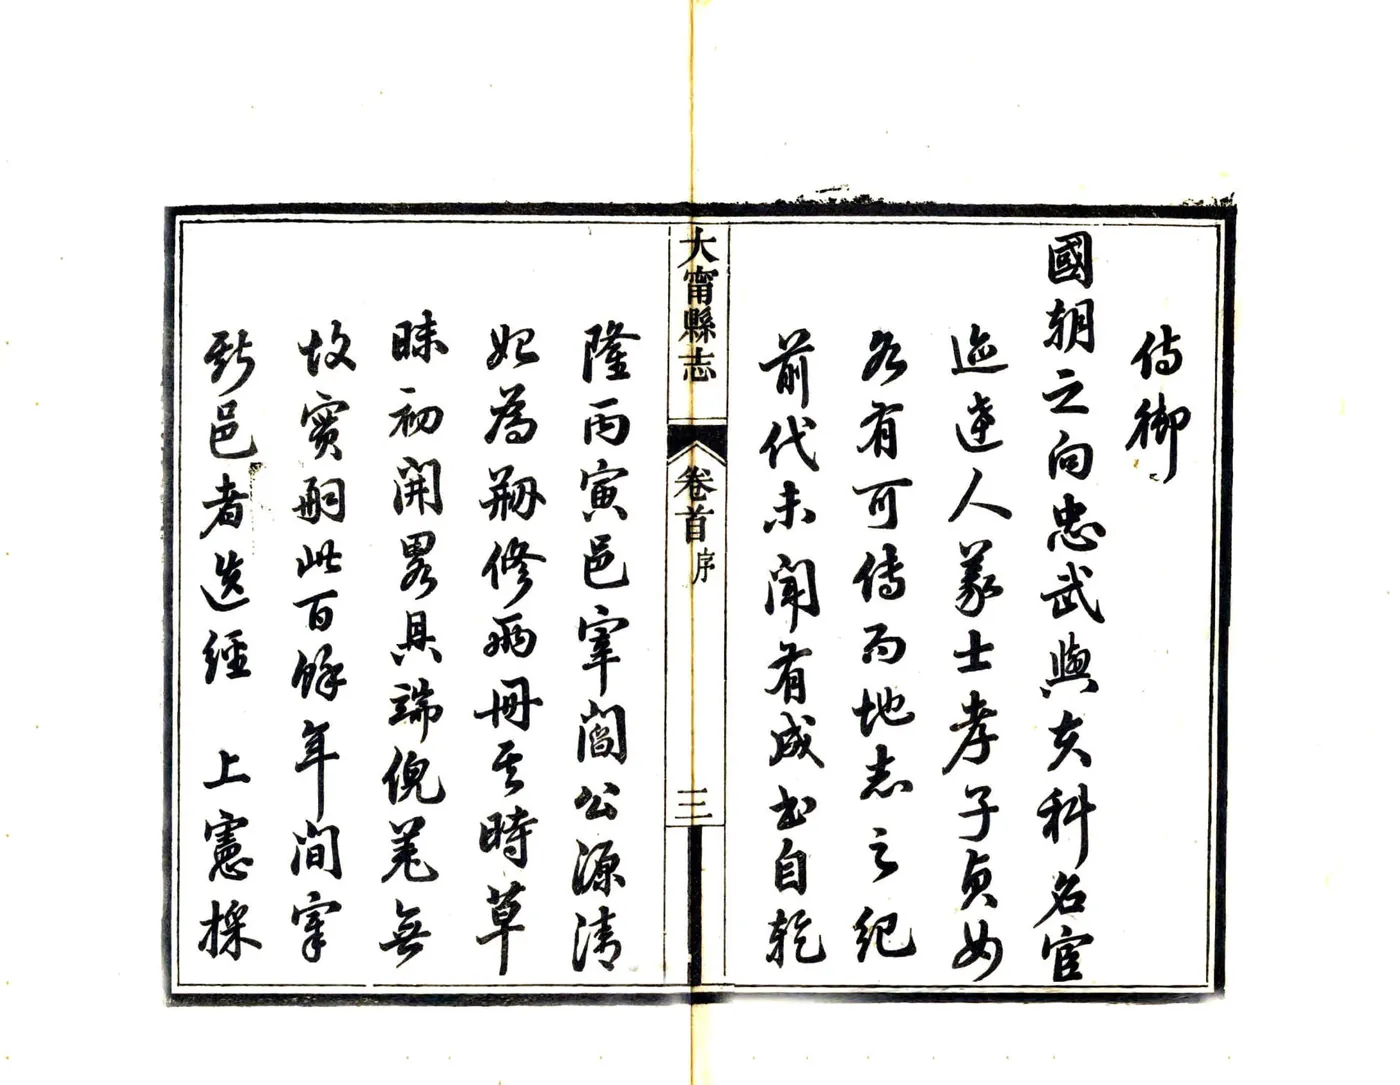 侍御
國朝之向忠武與夫科名宦
迹達人義士孝子貞女
各有可傳而地志之紀
前代未聞有成書自乾
大甯縣志
卷首
序
三
隆丙寅邑宰閻公源清
始為剏修兩冊其時草
昧初開畧具端倪羌無
故實嗣此百餘年間宰
斯邑者迭經 上憲採